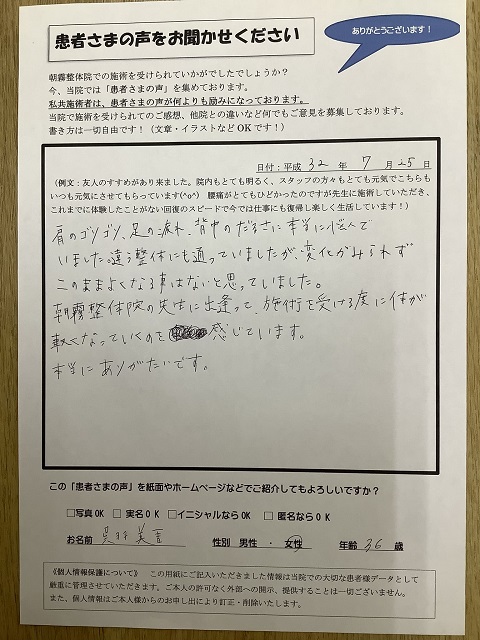 患者さまの声をお聞かせください
ありがとうございます！
朝霧整体院での施術を受けられていかがでしたでしょうか？
今、当院では「患者さまの声」を集めております。
私共施術者は、患者さまの声が何よりも励みになっております。
当院で施術を受けられてのご感想、他院との違いなど何でもご意見を募集しております。
書き方は一切自由です！（文章・イラストなどOKです！）
日付：平成 32 年 7 月 25 日
（例文：友人のすすめがあり来ました。院内もとても明るく、スタッフの方々もとても元気でこちらも
いつも元気にさせてもらっています(^o^) 腰痛がとてもひどかったのですが先生に施術していただき、
これまでに体験したことがない回復のスピードで今では仕事にも復帰し楽しく生活しています！）
肩のゴリゴリ、足の疲れ、背中のだるさに本当に悩んで
いました。違う整体にも通っていましたが、変化がみられず
このままよくなる事はないと思っていました。
朝霧整体院の先生に出逢って、施術を受ける度に体が
軽くなっていくのを 感じています。
本当にありがたいです。
この「患者さまの声」を紙面やホームページなどでご紹介してもよろしいですか？
□写真OK □ 実名OK □イニシャルならOK □ 匿名ならOK
お名前 美 性別 男性 ・ 女性 年齢 36 歳
《個人情報保護について》 この用紙にご記入いただきました情報は当院での大切な患者様データとして
厳重に管理させていただきます。ご本人の許可なく外部への開示、提供することは一切ございません。
また、個人情報はご本人様からのお申し出により訂正・削除いたします。